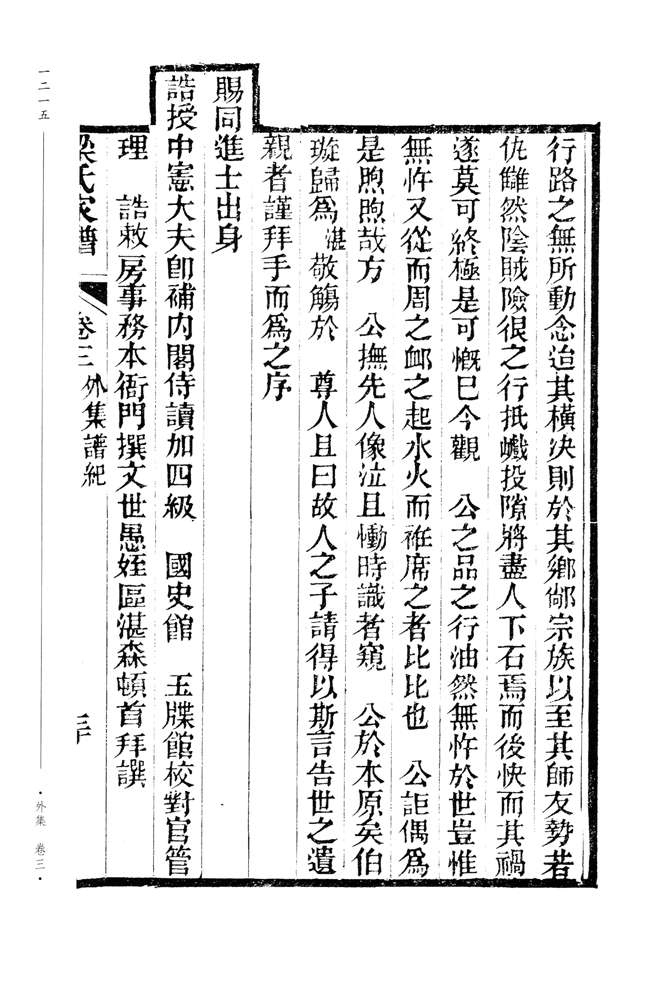 行路之無所動念迨其橫决則於其鄉鄰宗族以至其師友勢若
仇雠然陰賊險很之行抵巇投隙將盡人下石焉而後快而其禍
遂莫可終極是可慨巳今觀　公之品之行油然無忤於世豈惟
無忤又從而周之衈之起水火而袵席之者比比也　公詎偶為
是煦煦哉方　公撫先人像泣且慟時識者窺　公於本原矣伯
璇歸爲湛敬觴於　尊人且曰故人之子請得以斯言告世之遺
親者謹拜手而爲之序
賜同進士出身
誥授中憲大夫卽補内閣侍讀加四級　國史館　玉牒館校對官管
理　誥敕房事務本衙門撰文世愚姪區湛森頓首拜譔
梁氏家譜　卷三　外集譜紀　三十
一二一五
·外集　卷三·